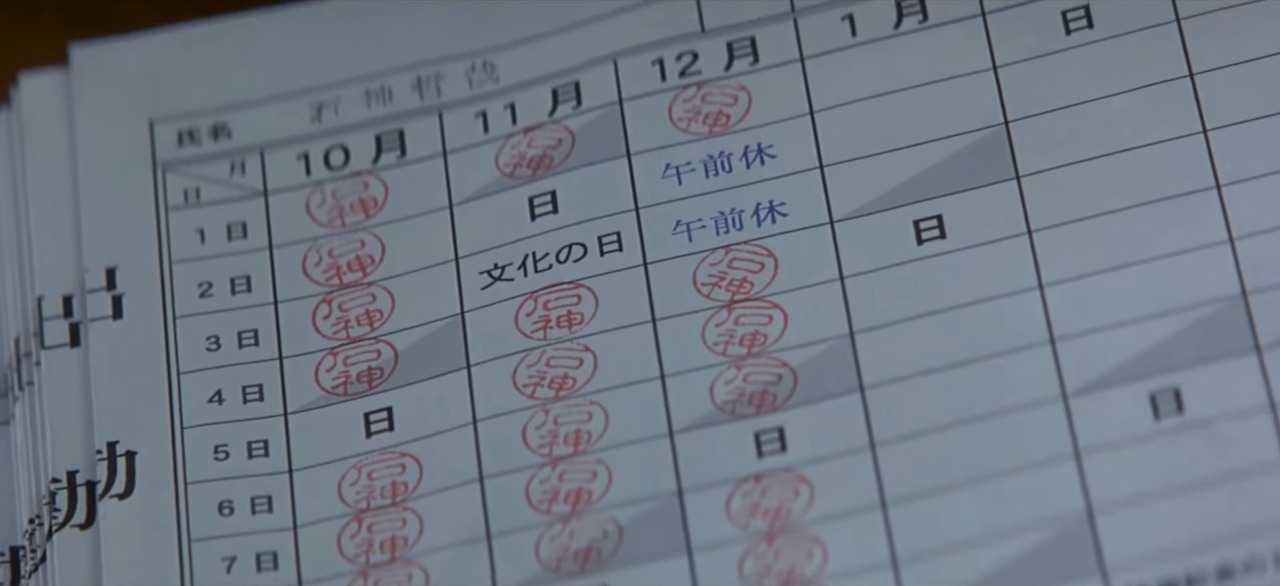 氏名 石神哲哉
月 10月 11月 12月 1月
日
1日 石神 石神 石神 日
2日 石神 日 午前休
3日 石神 文化の日 午前休
4日 石神 石神 石神 日
5日 日 石神 石神
6日 石神 石神 石神
7日 石神 石神 日
石神 石神 石神 日
石神
出
勤